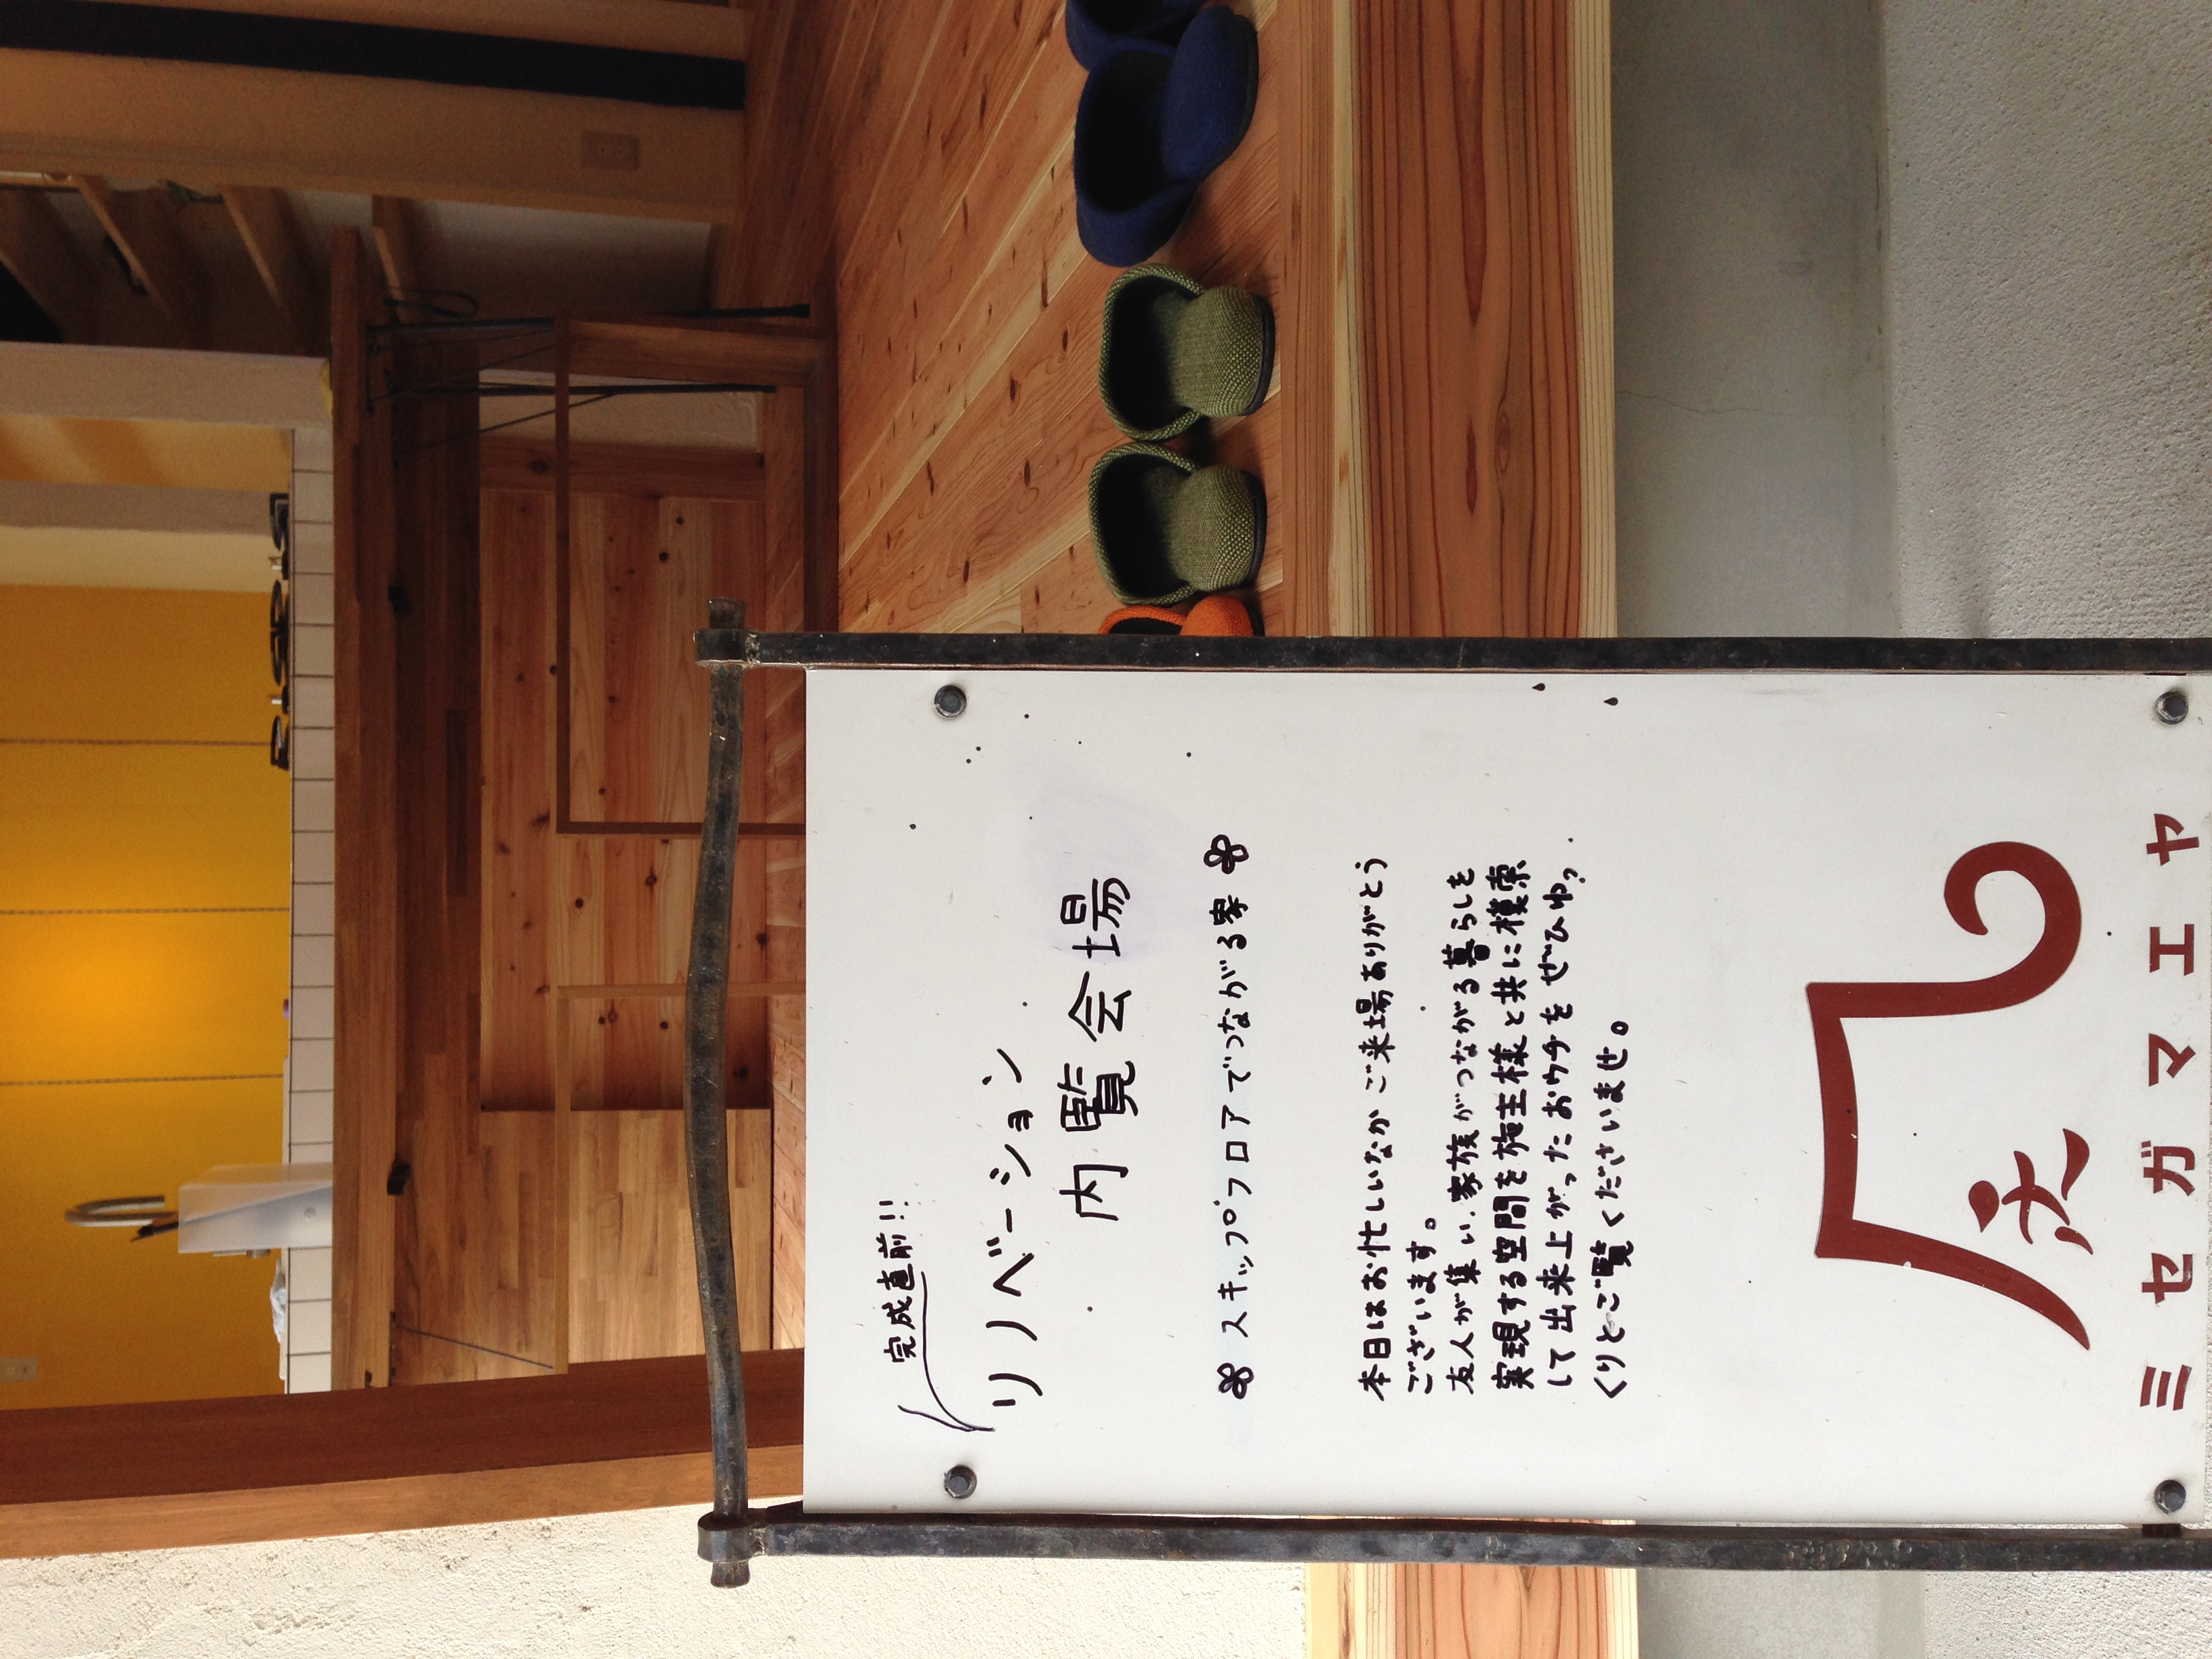 完成直前!!
リノベーション
内覧会場
スキップフロアでつながる家
本日はお忙しいなかご来場ありがとう
ございます。
友人が集い、家族がつながる暮らしを
実現する空間を施主様と共に模索
して出来上がったおウチをぜひゆっ
くりとご覧くださいませ。
ミセガマエヤ